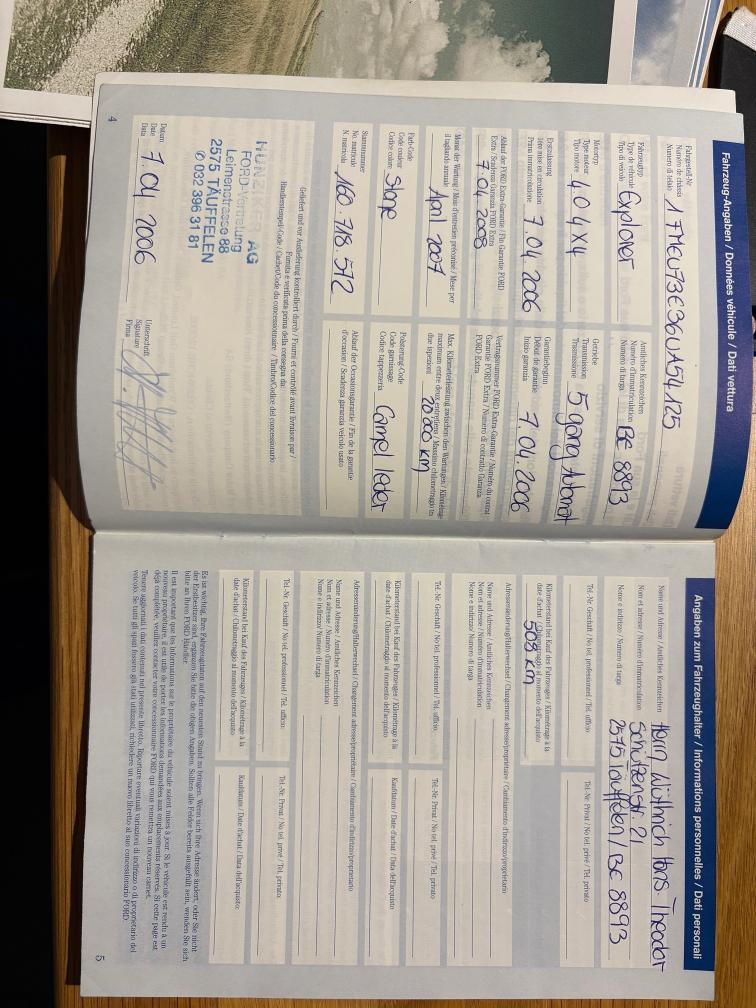 Fahrzeug-Angaben / Données véhicule / Dati vettura
Fahrgestell-Nr.
Numéro de châssis
Numero di telaio
1FMEU73E36UA54125
Fahrzeugtyp
Type de véhicule
Tipo di veicolo
Explorer
Amtliches Kennzeichen
Numéro d'immatriculation
Numero di targa
BE 8893
Motortyp
Type moteur
Tipo motore
4.0 4x4
Getriebe
Transmission
Trasmissione
5 gang Automat
Erstzulassung
1ère mise en circulation
Prima immatricolazione
7.04.2006
Garantiebeginn
Début de garantie
Inizio garanzia
7.04.2006
Ablauf der FORD Extra-Garantie / Fin Garantie FORD
Extra / Scadenza Garanzia FORD Extra
7.04.2008
Vertragsnummer FORD Extra-Garantie / Numéro du contrat
Garantie FORD Extra / Numero di contratto Garanzia
FORD Extra
Monat der Wartung / Mois d'entretien préconisé / Mese per
il tagliando annuale
April 2007
Max. Kilometerleistung zwischen den Wartungen / Kilométrage
maximum entre deux entretiens / Massimo chilometraggio tra
due ispezioni
20'000 km
Farb-Code
Code couleur
Codice colore
Stone
Polsterung-Code
Code garnissage
Codice tappezzeria
Camel leder
Stammnummer
No. matricule
N. matricola
160.718.572
Ablauf der Occasionsgarantie / Fin de la garantie
d'occasion / Scadenza garanzia veicolo usato
Geliefert und vor Auslieferung kontrolliert durch / Fourni et contrôlé avant livraison par /
Fornita e verificata prima della consegna da:
Händlerstempel-Code / Cachet/Code du concessionnaire / Timbro/Codice del concessionario
HUNZIKER AG
FORD-Vertretung
Leimenstrasse 88
2575 TÄUFFELEN
✆ 032 396 31 81
Datum
Date
Data
7.04.2006
Unterschrift
Signature
Firma
4
Angaben zum Fahrzeughalter / Informations personnelles / Dati personali
Name und Adresse / Amtliches Kennzeichen
Nom et adresse / Numéro d'immatriculation
Nome e indirizzo / Numero di targa
Herrn Wüthrich Hans Theodor
Schützenstr. 21
2575 Täuffelen / BE 8893
Tel.-Nr. Geschäft / No tel. professionnel / Tel. ufficio
Tel.-Nr. Privat / No tel. privé / Tel. privato
Kilometerstand bei Kauf des Fahrzeuges / Kilométrage à la
date d'achat / Chilometraggio al momento dell'acquisto
508 km
Adressänderung/Halterwechsel / Changement adresse/propriétaire / Cambiamento d'indirizzo/proprietario
Name und Adresse / Amtliches Kennzeichen
Nom et adresse / Numéro d'immatriculation
Nome e indirizzo / Numero di targa
Tel.-Nr. Geschäft / No tel. professionnel / Tel. ufficio
Tel.-Nr. Privat / No tel. privé / Tel. privato
Kilometerstand bei Kauf des Fahrzeuges / Kilométrage à la
date d'achat / Chilometraggio al momento dell'acquisto
Kaufdatum / Date d'achat / Data dell'acquisto
Adressänderung/Halterwechsel / Changement adresse/propriétaire / Cambiamento d'indirizzo/proprietario
Name und Adresse / Amtliches Kennzeichen
Nom et adresse / Numéro d'immatriculation
Nome e indirizzo / Numero di targa
Tel.-Nr. Geschäft / No tel. professionnel / Tel. ufficio
Tel.-Nr. Privat / No tel. privé / Tel. privato
Kilometerstand bei Kauf des Fahrzeuges / Kilométrage à la
date d'achat / Chilometraggio al momento dell'acquisto
Kaufdatum / Date d'achat / Data dell'acquisto
Es ist wichtig, Ihre Fahrzeugdaten auf den neuesten Stand zu bringen. Wenn sich Ihre Adresse ändert, oder Sie nicht
der Erstbesitzer sind, ergänzen Sie bitte die obigen Angaben. Sollten alle Felder bereits ausgefüllt sein, wenden Sie sich
bitte an Ihren FORD Händler.
Il est important que les informations sur le propriétaire du véhicule soient mises à jour. Si le véhicule est vendu à un
nouveau propriétaire, il est utile de porter les informations demandées aux emplacements réservés. Si cette page est
déjà complétée, veuillez contacter votre concessionnaire FORD qui vous remettra un nouveau carnet.
Tenere aggiornati i dati contenuti nel presente libretto. Riportare eventuali variazioni di indirizzo o di proprietario del
veicolo. Se tutti gli spazi fossero già stati utilizzati, richiedere un nuovo libretto al suo concessionario FORD.
5